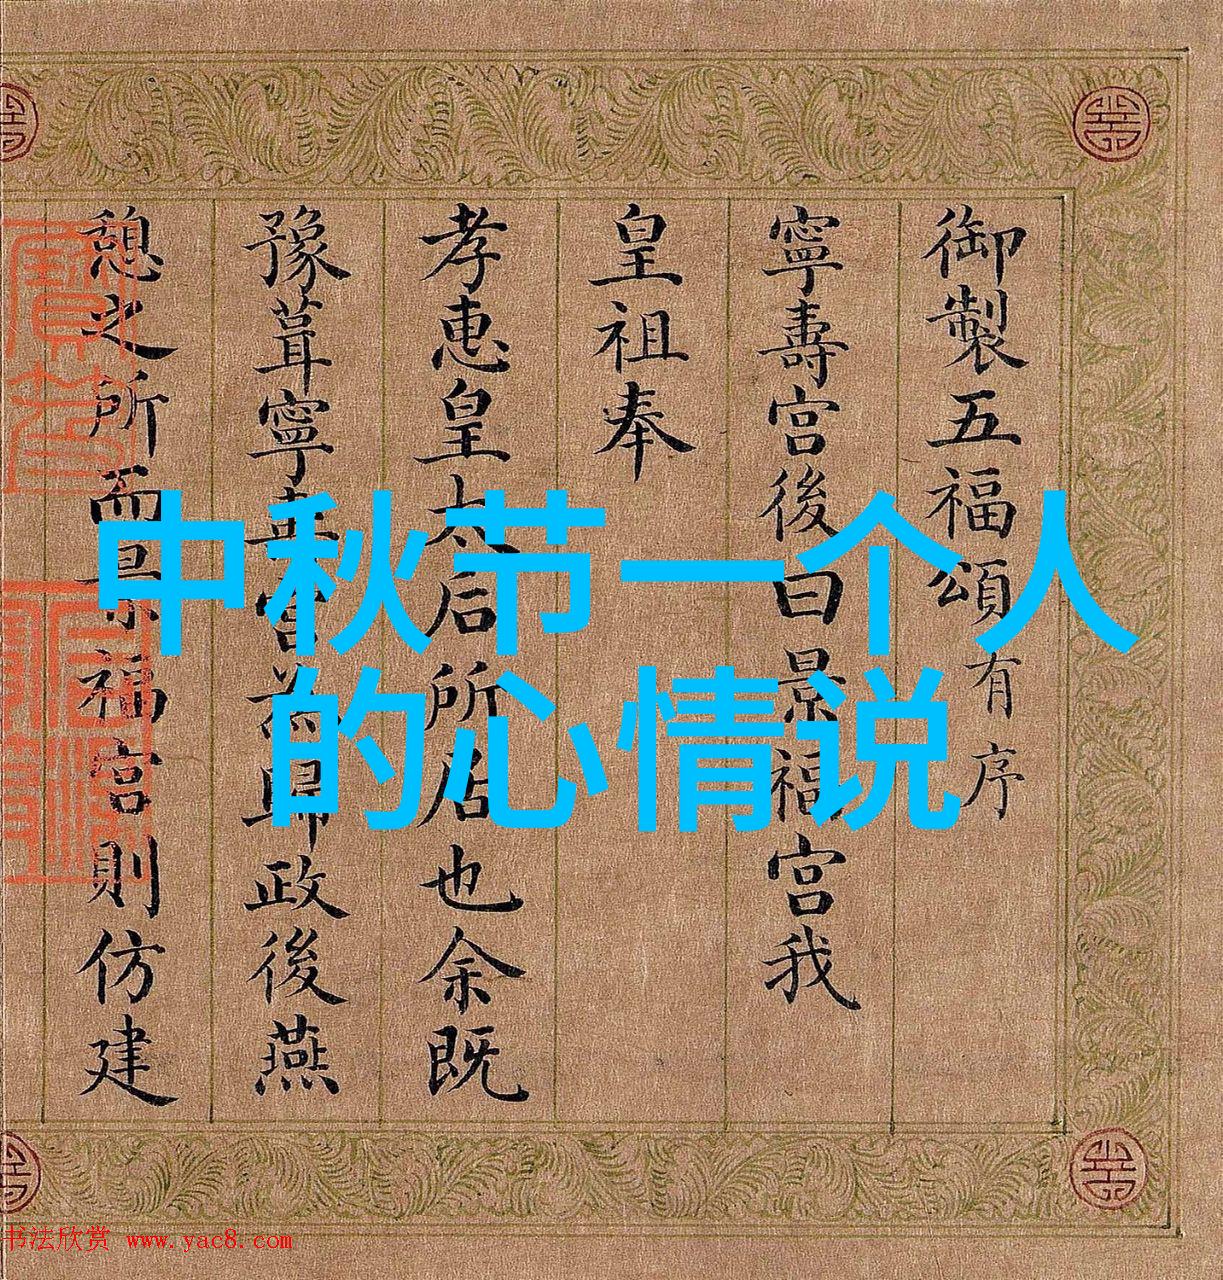 御製五福頌有序
寧壽宮後曰景福宮我
皇祖奉
孝惠皇太后所居也余既
豫葺寧壽宮為歸政後燕
憩之所而景福宮則仿建
中秋节一个人
的心情说
书法欣赏 www.yac8.com